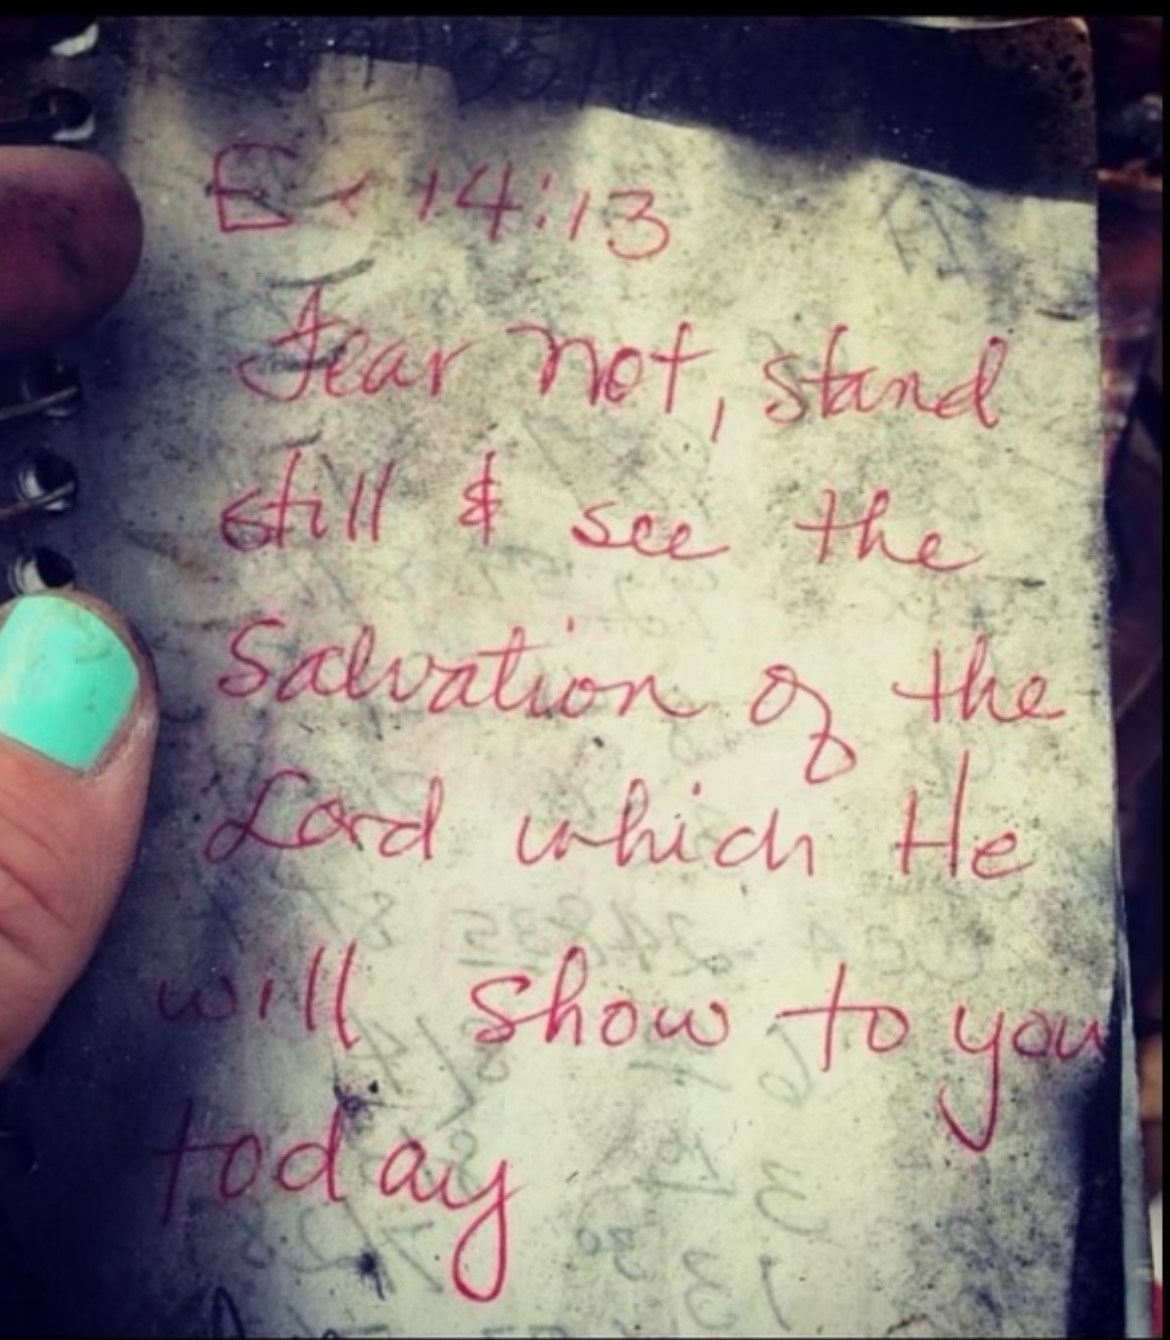 Ex 14:13
Fear not, stand
still & see the
Salvation of the
Lord which He
will show to you
today